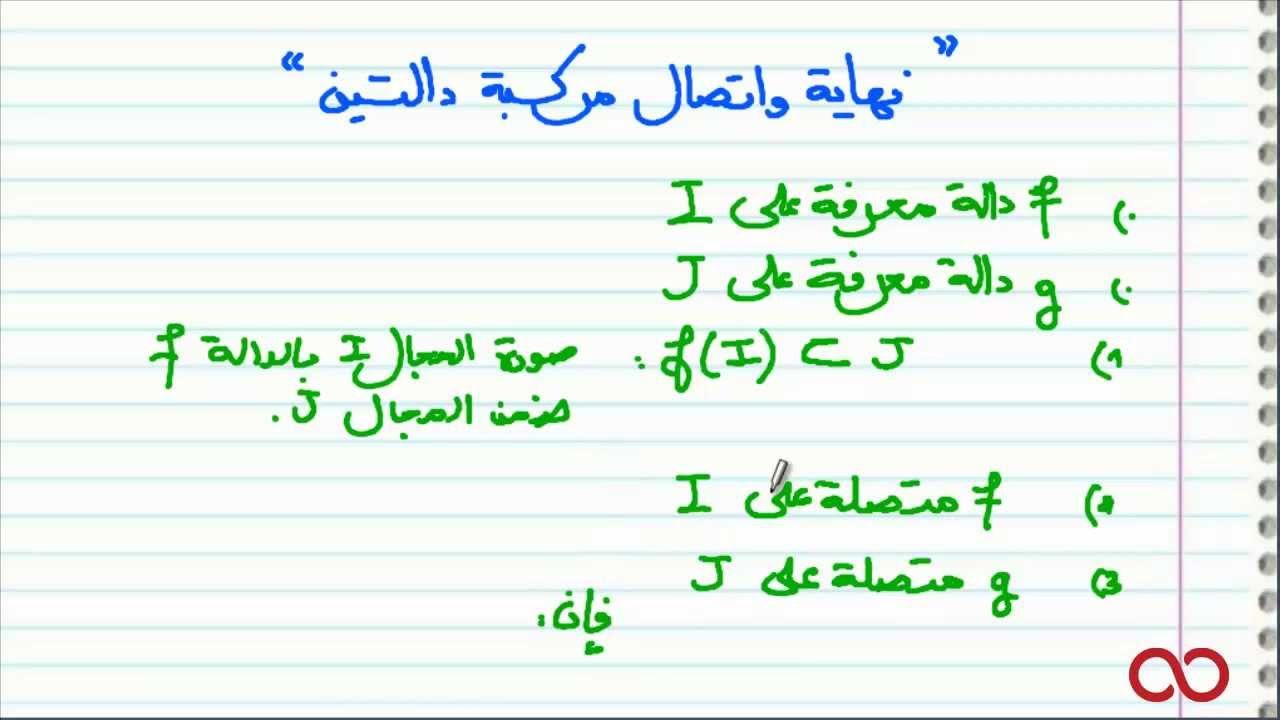 "نهاية واتصال مركبة دالتين"
(· f دالة معرفة على I
(· g دالة معرفة على J
(1 f(I) ⊂ J : صورة المجال I بالدالة f
ضمن المجال J.
(2 f متصلة على I
(3 g متصلة على J
فإن: